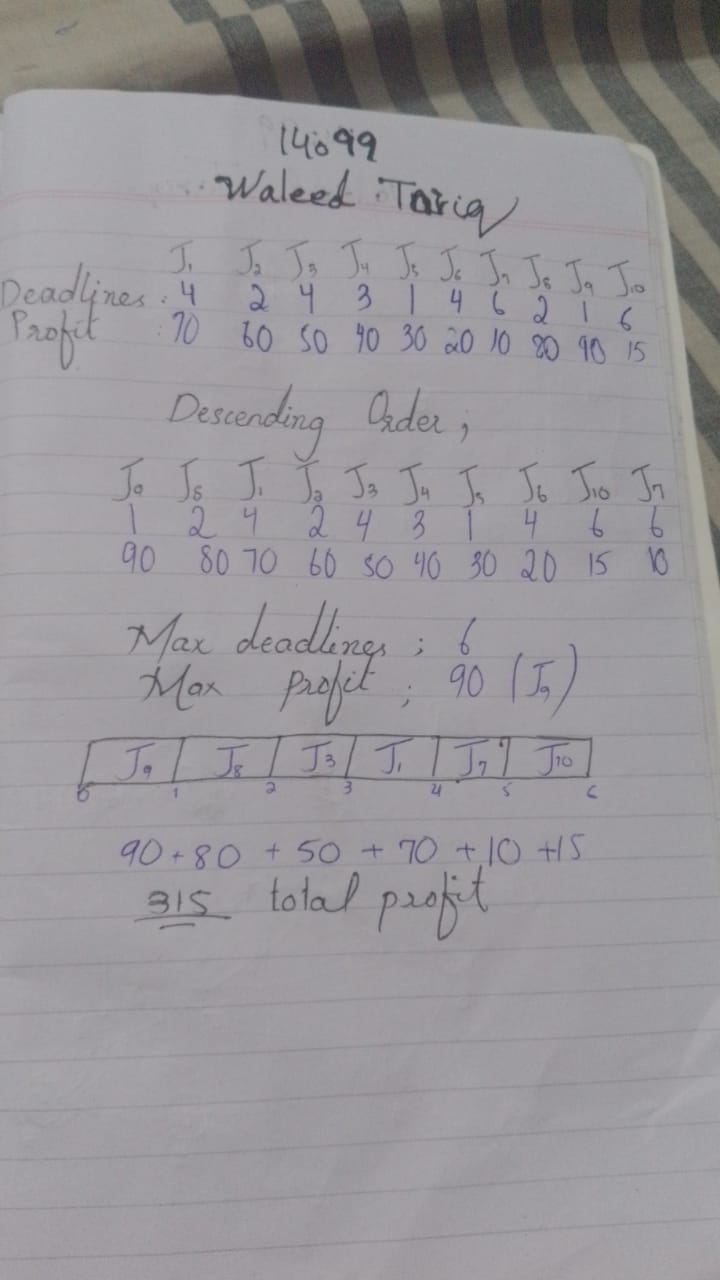 14099
Waleed Tariq
J1 J2 J3 J4 J5 J6 J7 J8 J9 J10
Deadlines : 4 2 4 3 1 4 6 2 1 6
Profit : 70 60 50 40 30 20 10 80 90 15
Descending Order ;
J9 J8 J1 J2 J3 J4 J5 J6 J10 J7
1 2 4 2 4 3 1 4 6 6
90 80 70 60 50 40 30 20 15 10
Max deadlines ; 6
Max profit ; 90 (J9)
J9 J8 J3 J1 J7 J10
0 1 2 3 4 5 6
90 + 80 + 50 + 70 + 10 + 15
315 total profit